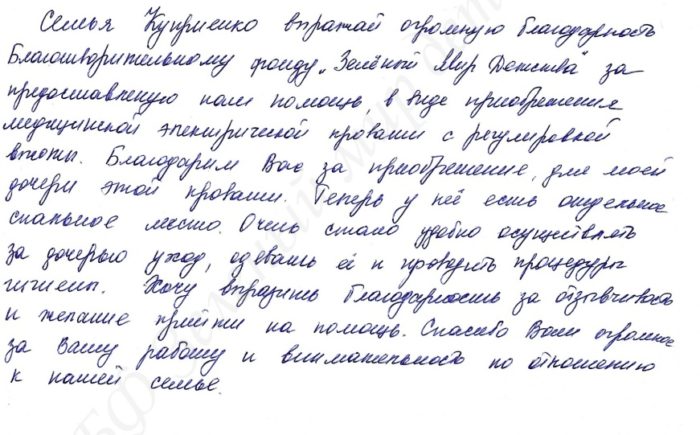 Семья Куприенко выражай огромную благодарность
Благотворительному фонду „Зелёный Мир Детства" за
предоставленную нам помощь, в виде приобретения
медицинской электрической кровати с регулировкой
высоты. Благодарим Вас за приобретение, для моей
дочери этой кровати. Теперь у неё есть отдельное
спальное место. Очень стало удобно осуществлять
за дочерью уход, одевать её и проводить процедуры
гигиены. Хочу выразить благодарность за отзывчивость
и желание прийти на помощь. Спасибо Вам огромное
за Вашу работу и внимательность по отношению
к нашей семье.